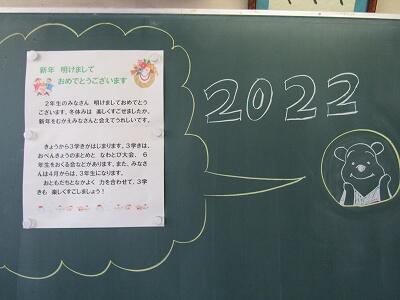 新年 明けまして
おめでとうございます
2年生のみなさん 明けましておめでとう
ございます。冬休みは 楽しくすごせましたか。
新年をむかえみなさんと会えてうれしいです。
きょうから3学きがはじまります。3学きは、
おべんきょうのまとめと なわとび大会、 6
年生をおくる会などがあります。また、みなさ
んは4月からは、3年生になります。
おともだちとなかよく 力を合わせて、3学
きも 楽しくすごしましょう!
2022